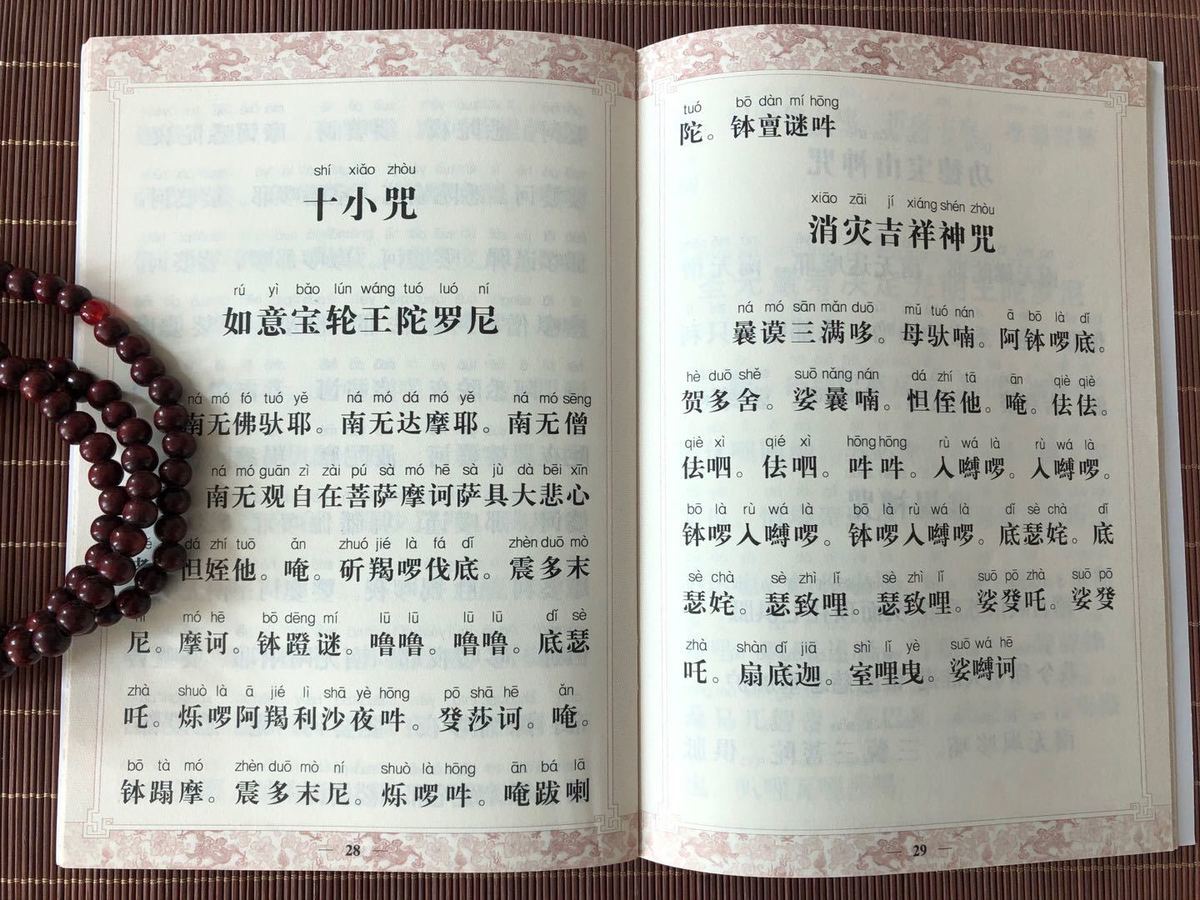 shí xiǎo zhòu
十小咒
rú yì bǎo lún wáng tuó luó ní
如意宝轮王陀罗尼
ná mó fó tuó yě ná mó dá mó yě ná mó sēng
南无佛驮耶。南无达摩耶。南无僧
ná mó guān zì zài pú sà mó hē sà jù dà bēi xīn
南无观自在菩萨摩诃萨具大悲心
dá zhí tuō ǎn zhuó jié là fá dǐ zhèn duō mò
怛姪他。唵。斫羯啰伐底。震多末
mó hē bō dēng mí lū lū lū lū dǐ sè
尼。摩诃。钵蹬谜。噜噜。噜噜。底瑟
zhà shuò là ā jié lì shā yè hōng pō shā hē ǎn
吒。烁啰阿羯利沙夜吽。癹莎诃。唵。
bō tà mó zhèn duō mò ní shuò là hōng ǎn bá lā
钵蹋摩。震多末尼。烁啰吽。唵跋喇
28
tuó bō dàn mí hōng
陀。钵亶谜吽
xiāo zāi jí xiáng shén zhòu
消灾吉祥神咒
ná mó sān mǎn duō mǔ tuó nán ā bō là dǐ
曩谟三满哆。母驮喃。阿钵啰底。
hè duō shě suō nǎng nán dá zhí tā ǎn qiè qiè
贺多舍。娑曩喃。怛侄他。唵。佉佉。
qiè xì qié xì hōng hōng rù wá là rù wá là
佉呬。佉呬。吽吽。入嚩啰。入嚩啰。
bō là rù wá là bō là rù wá là dǐ sè chà dǐ
钵啰入嚩啰。钵啰入嚩啰。底瑟姹。底
sè chà sè zhì lǐ sè zhì lǐ suō pō zhà suō pō
瑟姹。瑟致哩。瑟致哩。娑癹吒。娑癹
zhà shàn dǐ jiā shì lǐ yè suō wá hē
吒。扇底迦。室哩曳。娑嚩诃
29